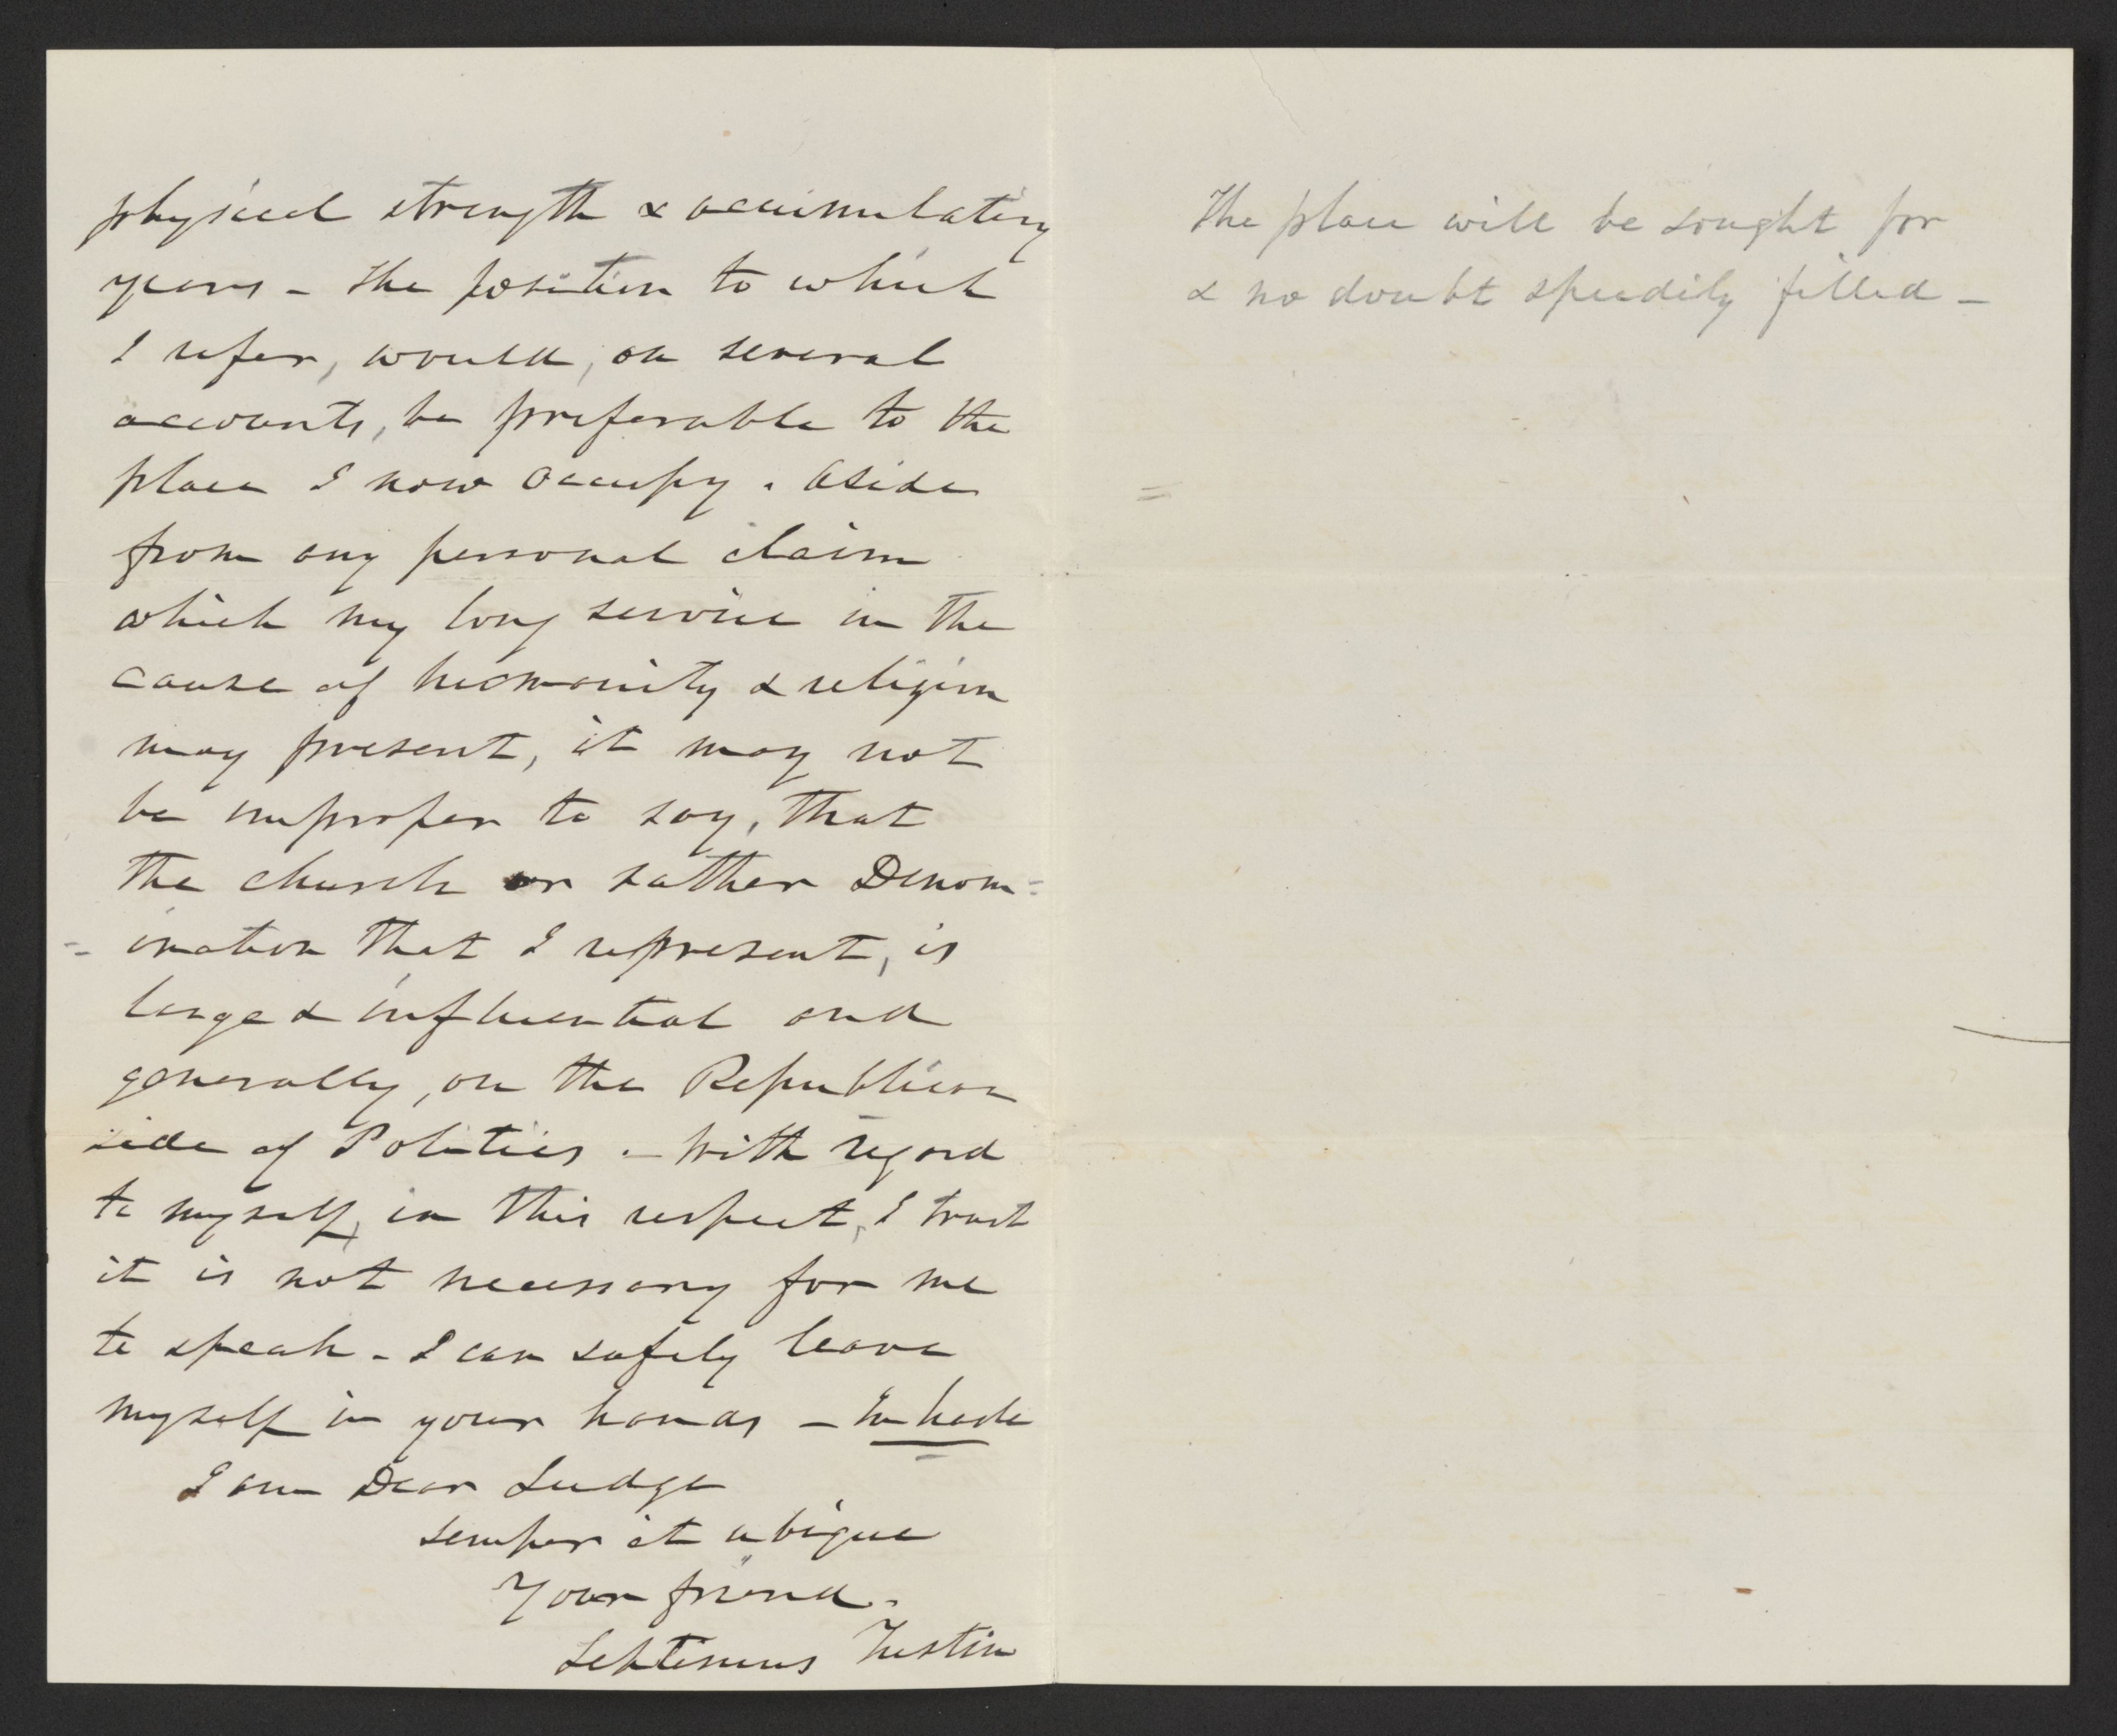 physical strength & accumulating
years - the position to which
I refer, would, on several
accounts, be preferable to the
place I now occupy. Aside
from any personal claim
which my long service in the
cause of humanity & religion
may present, it may not
be improper to say, that
the church or rather Denom=
=ination that I represent, is
large & influential and
generally, on the Republican
side of Politics. - With regard
to myself, in this respect, I trust
it is not necessary for me
to speak - I can safely leave
myself in your hands - In haste
I am Dear Judge
semper et ubique
Your friend.
Septimus Tustin
The place will be sought for
& no doubt speedily filled -